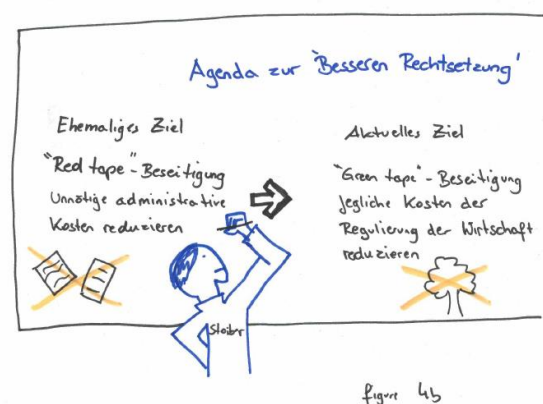 Agenda zur "Besseren Rechtsetzung"
Ehemaliges Ziel
"Red tape"-Beseitigung
Unnötige administrative
Kosten reduzieren
Aktuelles Ziel
"Green tape"-Beseitigung
Jegliche Kosten der
Regulierung der Wirtschaft
reduzieren
Stoiber
figure 4b